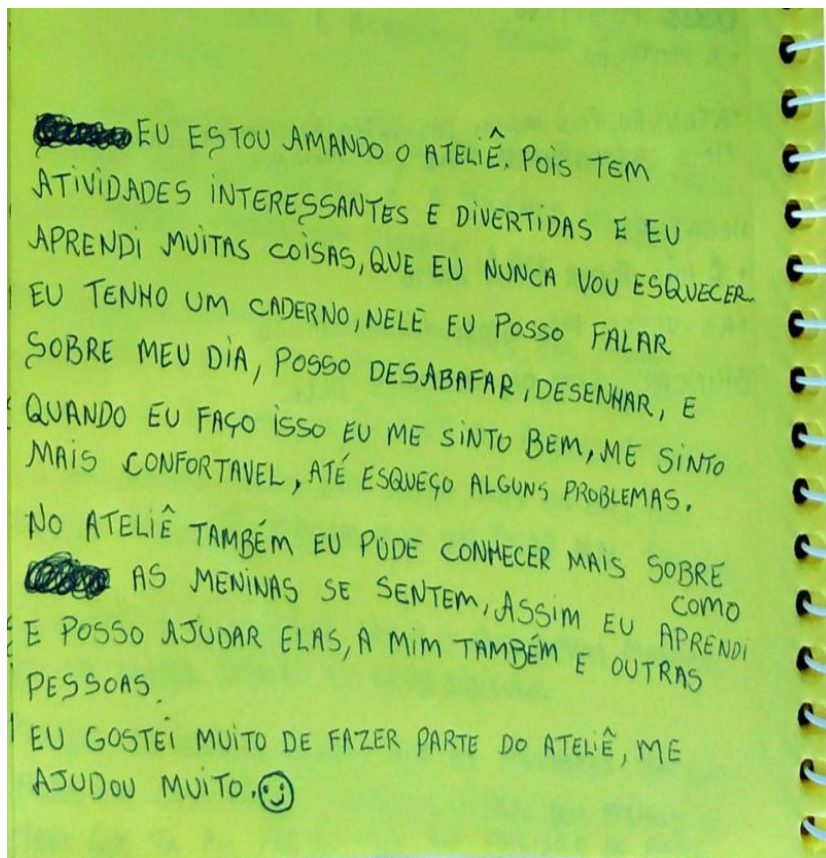 EU ESTOU AMANDO O ATELIÊ. POIS TEM
ATIVIDADES INTERESSANTES E DIVERTIDAS E EU
APRENDI MUITAS COISAS, QUE EU NUNCA VOU ESQUECER.
EU TENHO UM CADERNO, NELE EU POSSO FALAR
SOBRE MEU DIA, POSSO DESABAFAR, DESENHAR, E
QUANDO EU FAÇO ISSO EU ME SINTO BEM, ME SINTO
MAIS CONFORTAVEL, ATÉ ESQUEÇO ALGUNS PROBLEMAS.
NO ATELIÊ TAMBÉM EU PUDE CONHECER MAIS SOBRE
COMO
AS MENINAS SE SENTEM, ASSIM EU APRENDI
E POSSO AJUDAR ELAS, A MIM TAMBÉM E OUTRAS
PESSOAS.
EU GOSTEI MUITO DE FAZER PARTE DO ATELIÊ, ME
AJUDOU MUITO.